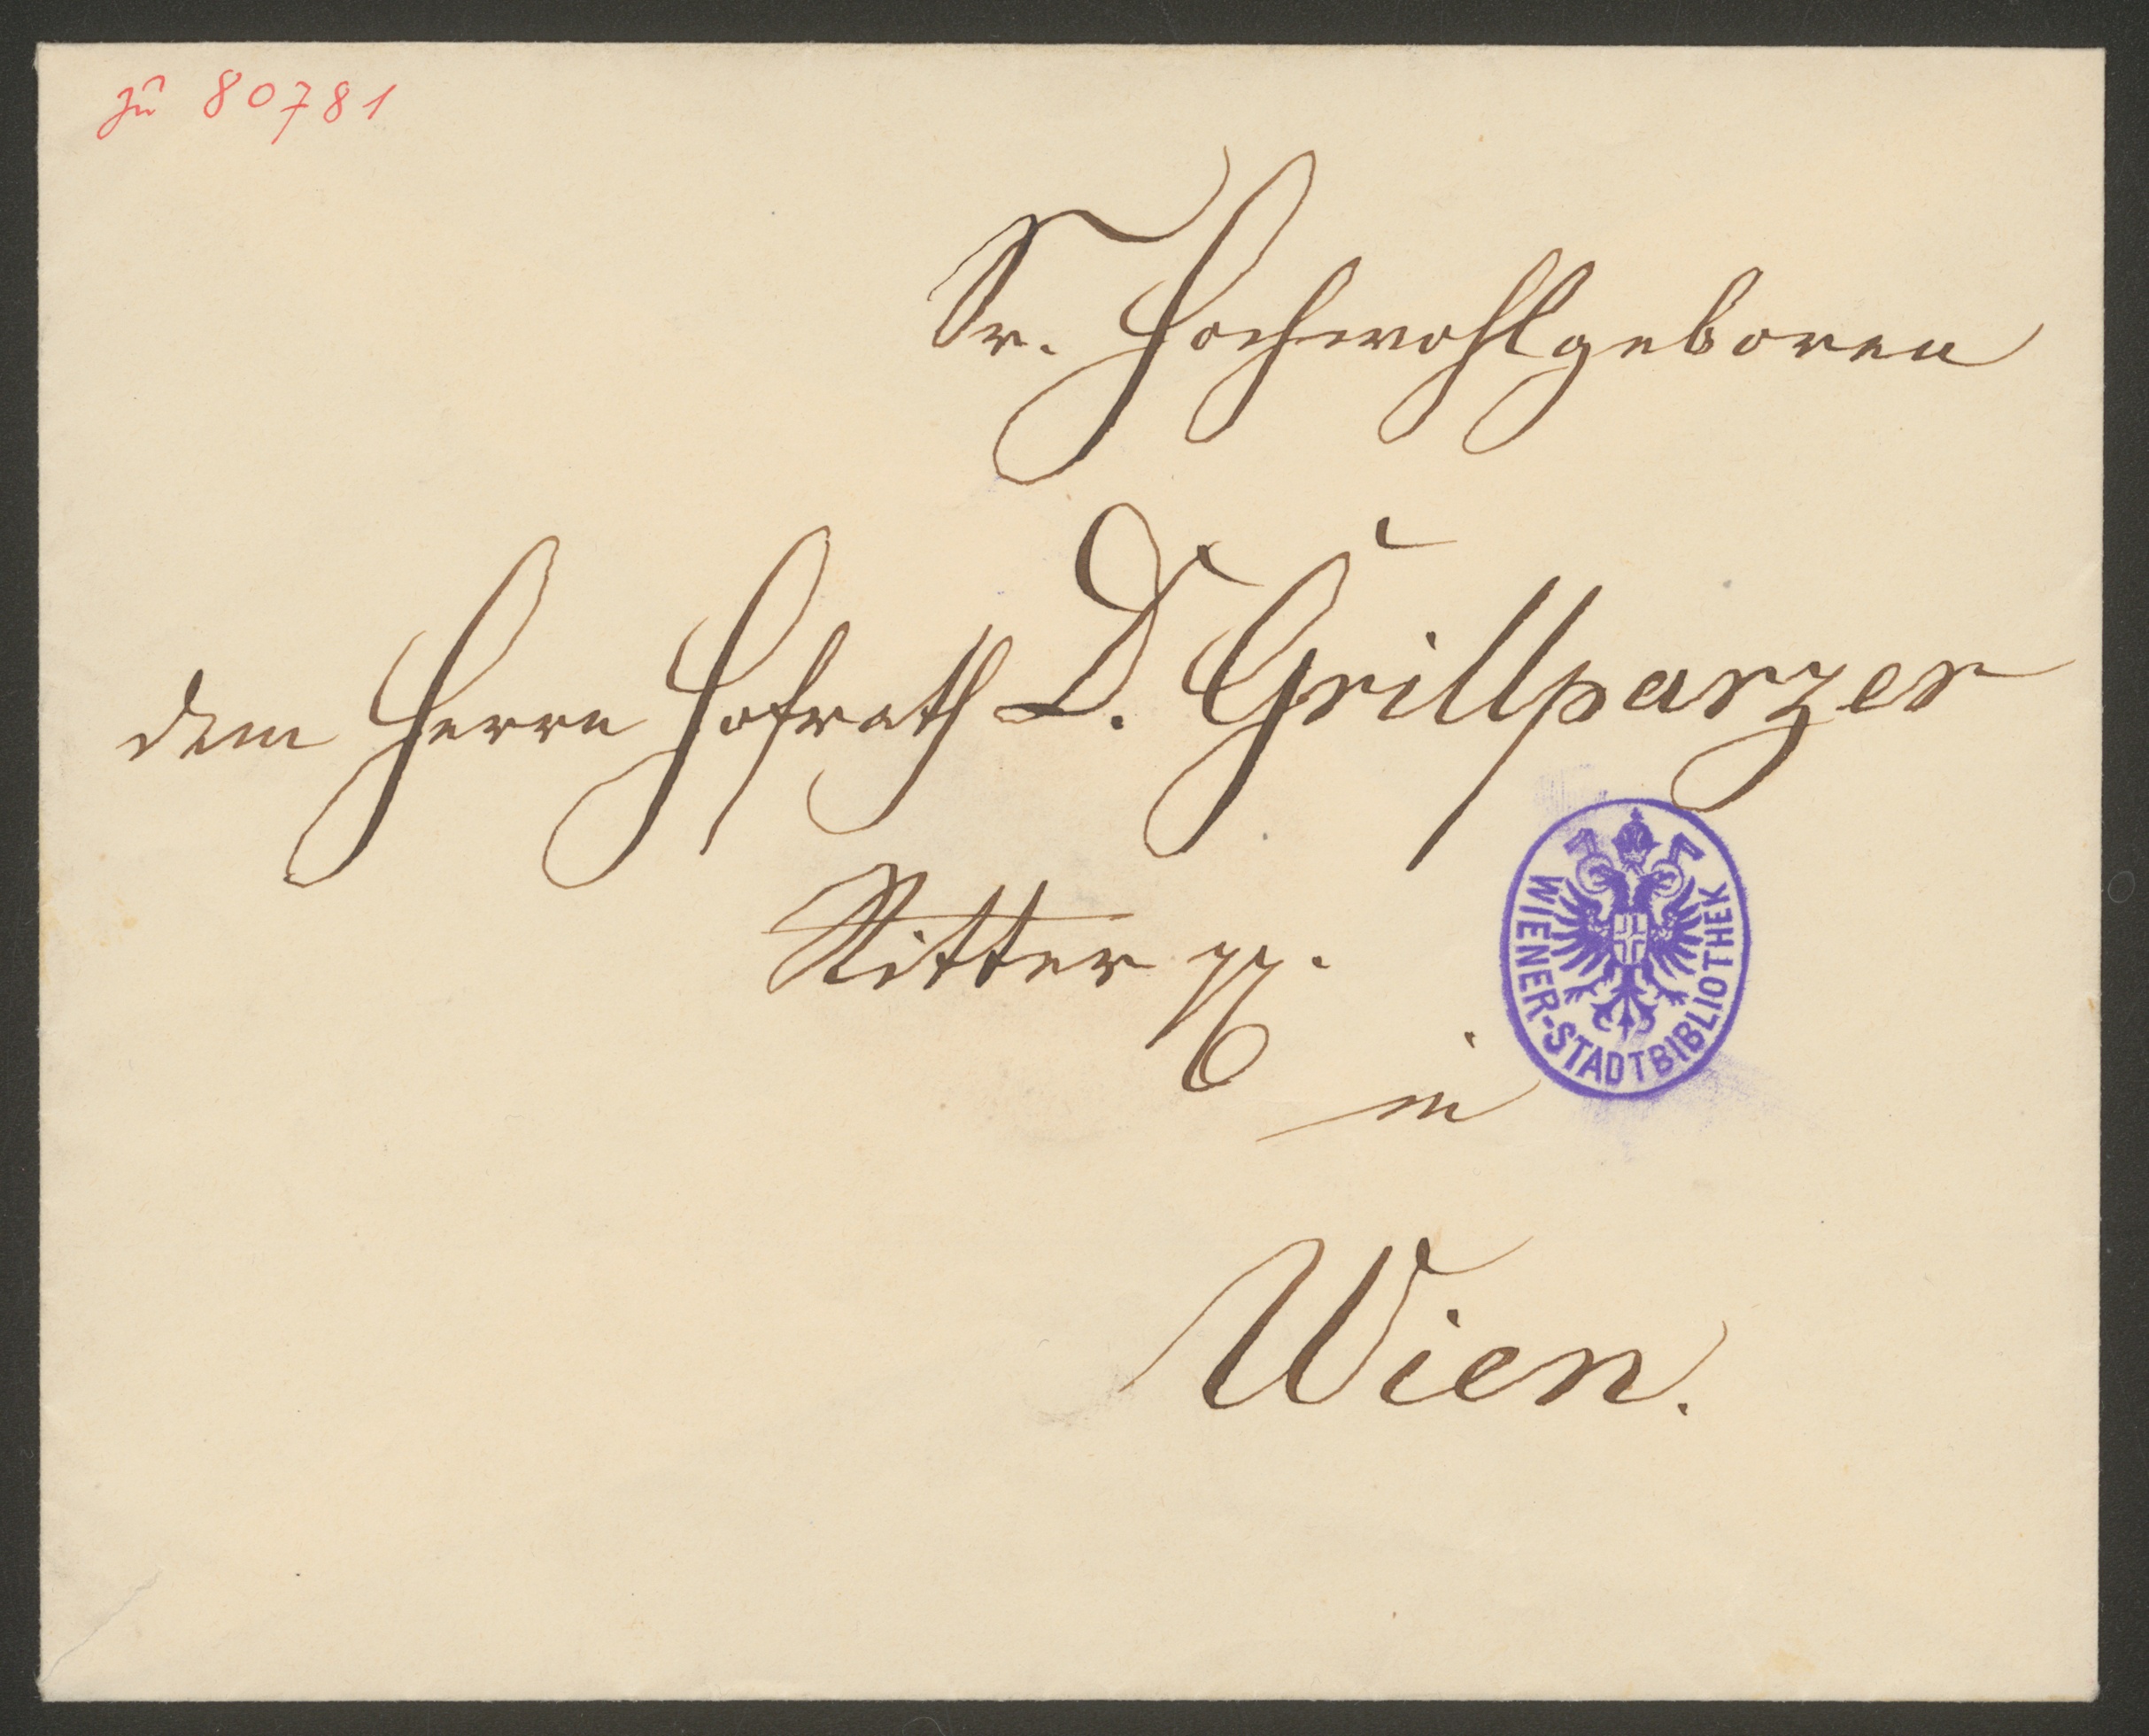 zu 80781
Sr. Hochwohlgeboren
dem Herrn Hofrath D. Grillparzer
Ritter pp.
in
WIENER-STADTBIBLIOTHEK
Wien.